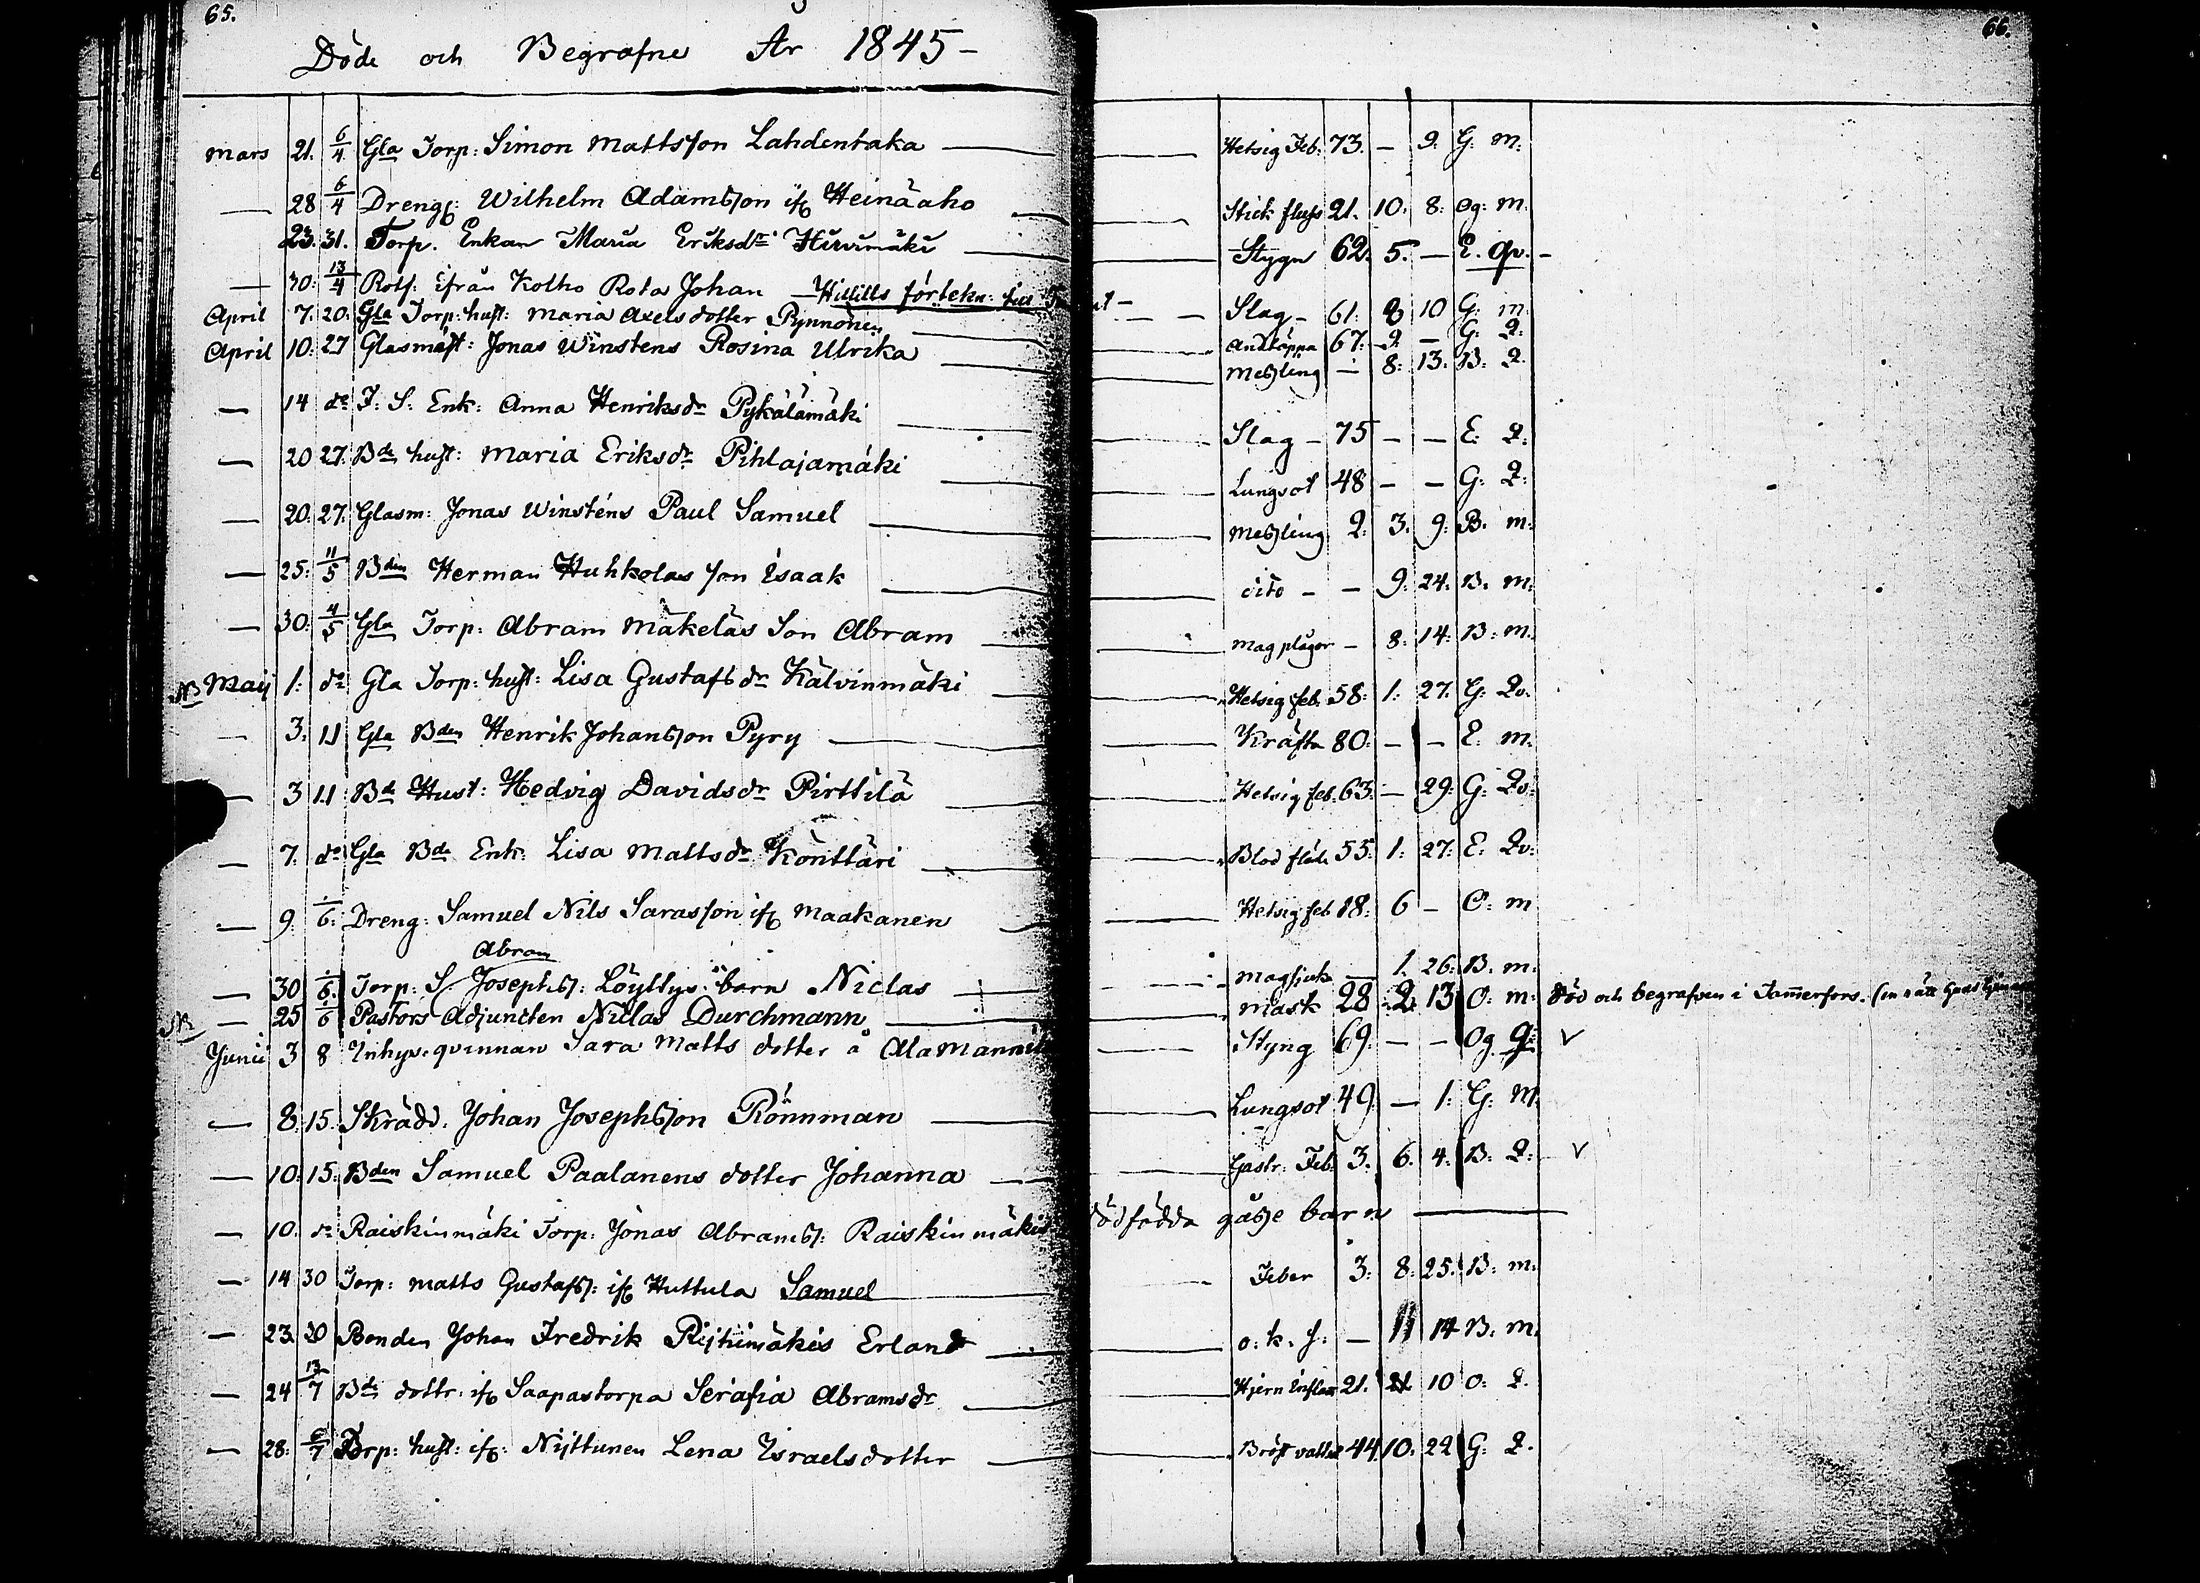 65.
66.
Döde och Begrafne År 1845 –
Mars 21. 6/4 Gla Torp: Simon Mattsson Lahdentaka — Hetsig Feb: 73. – 9. G. m.
— 28 6/4 Dreng: Wilhelm Adamsson if Heinäaho — Stick fluss 21. 10. 8. Og. m.
23. 31. Torp. Enkan Maria Eriksdr Hirvimäki — Stygn 62. 5. — E. Qv. –
— 30. 13/4 Rotf: ifrån Kotho Rota Johan — Hitills förtekn: — Slag – 61. 8 10 G. m.
April 7. 20. Gla Torp: hust: Maria Axels dotter Pynnönen — Andtäppa 67. 9. — G. Q.
April 10. 27 Glasmäst: Jonas Winstens Rosina Ulrika — Messling — 8. 13. B. Q.
— 14 do I. S. Enk: Anna Henriksdr Pykälämäki — Slag – 75 – – E. Q.
— 20 27. Bde hust: Maria Eriksdr Pihlajamäki — Lungsot 48 – – G. Q.
— 20. 27. Glasm: Jonas Winsténs Paul Samuel — Messling 2. 3. 9. B. m.
— 25. 11/5 Bden Herman Huhkolas son Isaak — dito – – 9. 24. B. m.
— 30. 4/5 Gla Torp: Abram Mäkeläs Son Abram — mag plågor – 8. 14. B. m.
NB Maij 1. do Gla Torp: hust: Lisa Gustafsdr Kälvinmäki — Hetsig feb. 58. 1. 27. G. Qv.
— 3. 11 Gla Bden Henrik Johansson Pyry — Kräfta 80. – – E. m.
— 3 11 Bd Hust: Hedvig Davidsdr Pirttilä — Hetsig feb. 63. – 29. G. Qv.
— 7. do Gla Bde Enk: Lisa Mattsdr Könttäri — Blod flöde 55. 1. 27. E. Qv.
— 9. 1/6. Dreng: Samuel Nils Sarasson if Maakanen — Hetsig feb 18. 6 – O. m
Abram
— 30 1/6. Torp: S. Josephss: Löyttys barn Niclas — Magsjuk — 1. 26. B. m.
NB — 25 1/6 Pastors Adjuncten Niclas Durchmann — Mask 28 2. 13 O. m. Död och begrafven i Tammerfors.
Junii 3 8 Inhys. qvinnan Sara Matts dotter å Ala Mannila — Styng 69. – – Og Q. V
— 8. 15. Skrädd. Johan Josephsson Rönnman — Lungsot 49. — 1. G. M.
— 10. 15. Bden Samuel Paalanens dotter Johanna — Gastr: Feb. 3. 6. 4. B. Q. V
— 10. do Raiskinmäki Torp: Jonas Abramss: Raiskinmäkis dödfödda gåsse barn —
— 14 30 Torp: Matts Gustafss: if Huttula Samuel — Feber 3. 8. 25. B. m.
— 23. 30 Bonden Johan Fredrik Rijhimäkis Erland — o. k. s. — 11 14 B. m.
— 24 13/7 Bde dottr. if Saapastorpa Serafia Abramsdr — Hjern 21. 10 O. Q.
— 28. 6/7 Torp: hust: if: Nijttunen Lena Israelsdotter — Bröst 44. 10. 22 G. Q.